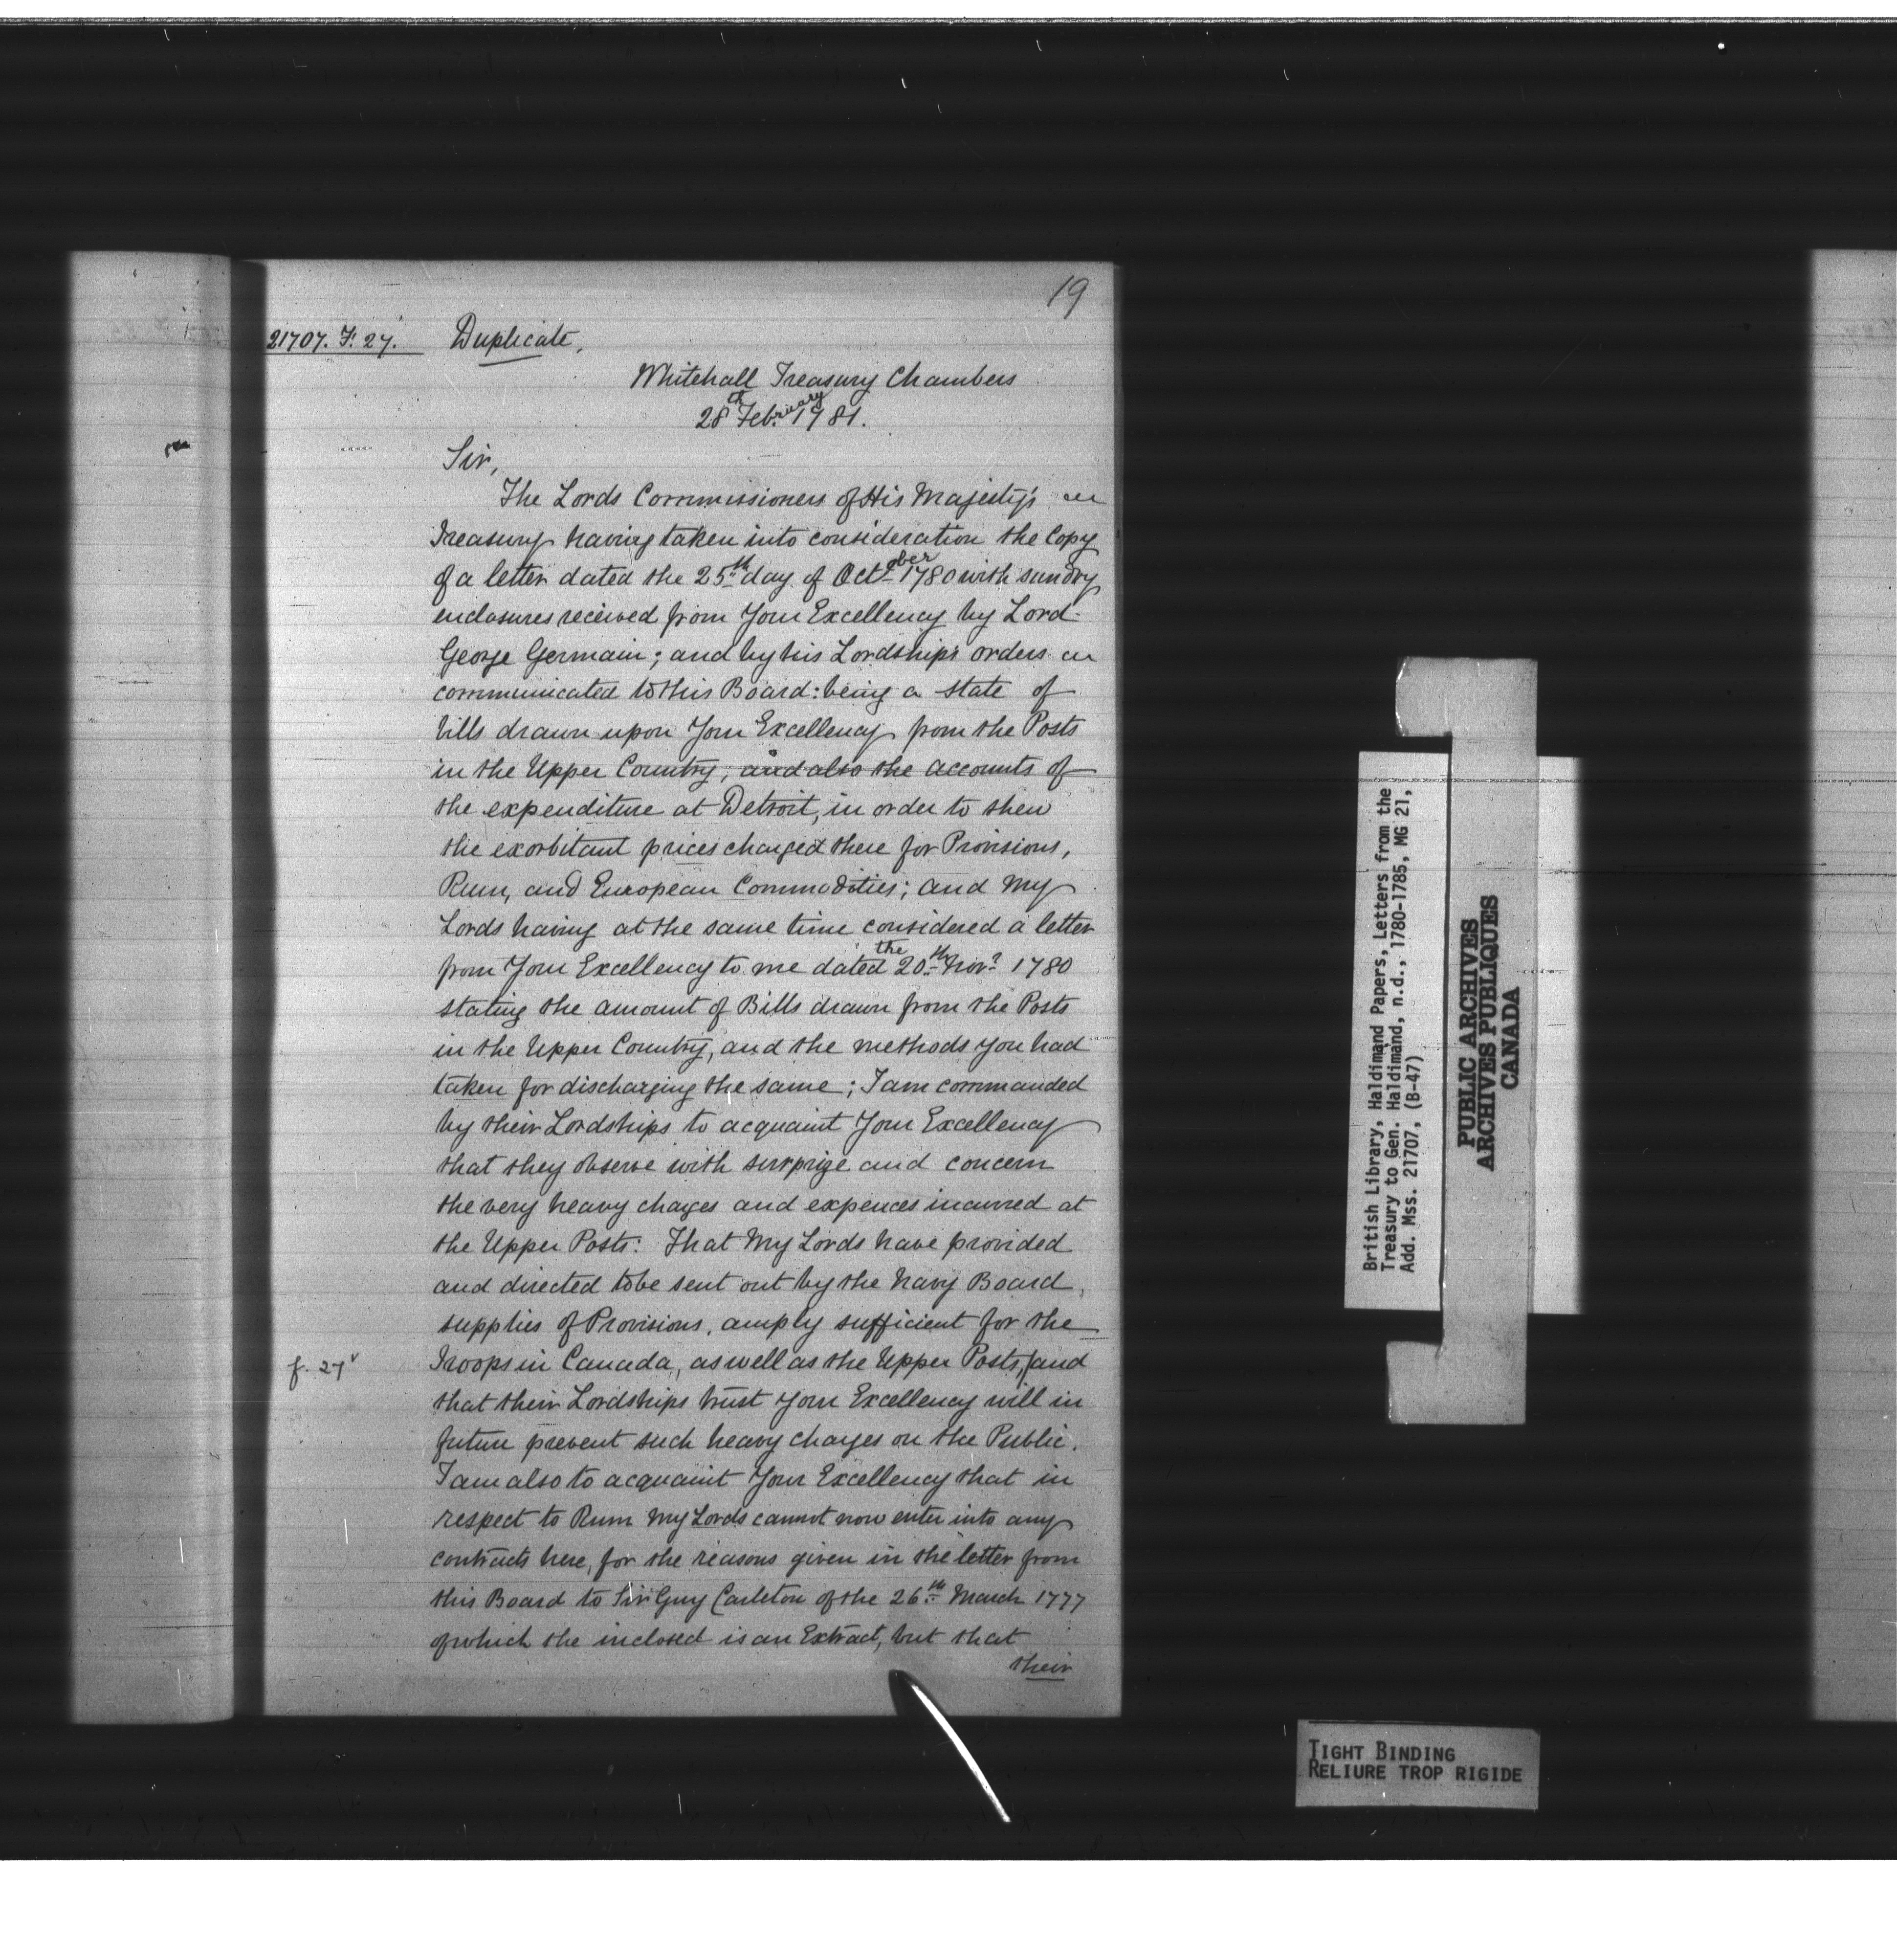 19
21707. F. 27. Duplicate,
Whitehall Treasury Chambers
28th February 1781.
Sir,
The Lords Commissioners of His Majesty's
Treasury having taken into consideration the Copy
of a letter dated the 25th day of October 1780 with sundry
enclosures received from Your Excellency by Lord
George Germain; and by his Lordship's orders
communicated to this Board: being a state of
bills drawn upon Your Excellency from the Posts
in the Upper Country; and also the accounts of
the expenditure at Detroit, in order to shew
the exorbitant prices charged there for Provisions,
Rum, and European Commodities; and My
Lords having at the same time considered a letter
from Your Excellency to me dated the 20th Novr 1780
stating the amount of Bills drawn from the Posts
in the Upper Country, and the methods you had
taken for discharging the same; I am commanded
by their Lordships to acquaint Your Excellency
that they observe with surprize and concern
the very heavy charges and expences incurred at
the Upper Posts: That My Lords have provided
and directed to be sent out by the Navy Board,
supplies of Provisions, amply sufficient for the
f. 27v Troops in Canada, as well as the Upper Posts, and
that their Lordships trust Your Excellency will in
future prevent such heavy charges on the Public.
I am also to acquaint Your Excellency that in
respect to Rum My Lords cannot now enter into any
contracts here, for the reasons given in the letter from
this Board to Sir Guy Carleton of the 26th March 1777
of which the inclosed is an Extract, but that
their
British Library, Haldimand Papers, Letters from the
Treasury to Gen. Haldimand, n.d., 1780-1785, MG 21,
Add. Mss. 21707, (B-47)
PUBLIC ARCHIVES
ARCHIVES PUBLIQUES
CANADA
TIGHT BINDING
RELIURE TROP RIGIDE